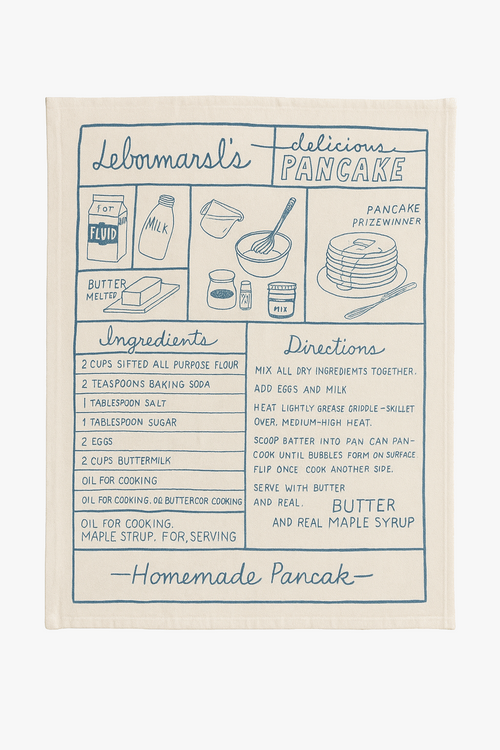 Lebovmarsl's
delicious
PANCAKE
FOT
FLUID
MILK
BUTTER
MELTED
MIX
PANCAKE
PRIZEWINNER
Ingredients
2 CUPS SIFTED ALL PURPOSE FLOUR
2 TEASPOONS BAKING SODA
1 TABLESPOON SALT
1 TABLESPOON SUGAR
2 EGGS
2 CUPS BUTTERMILK
OIL FOR COOKING
OIL FOR COOKING. OR BUTTERCOR COOKING
OIL FOR COOKING.
MAPLE STRUP. FOR, SERVING
Directions
MIX ALL DRY INGREDIEMTS TOGETHER.
ADD EGGS AND MILK
HEAT LIGHTLY GREASE GRIDDLE-SKILLET
OVER, MEDIUM-HIGH HEAT.
SCOOP BATTER INTO PAN CAN PAN-
COOK UNTIL BUBBLES FORM ON SURFACE
FLIP ONCE COOK ANOTHER SIDE.
SERVE WITH BUTTER
AND REAL. BUTTER
AND REAL MAPLE SYRUP
—Homemade Pancak—